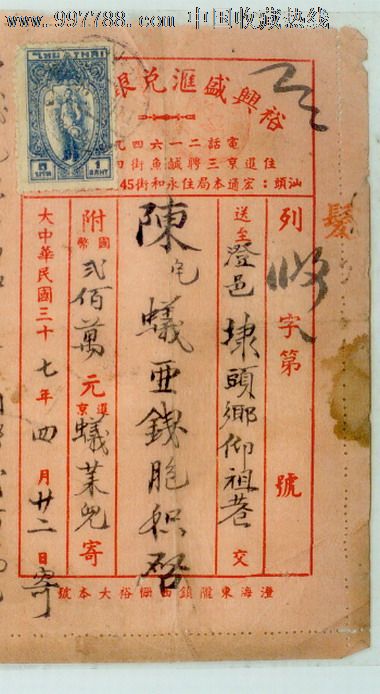 www.997788.com 中国收藏热线
THAI
1
BAHT
裕興盛滙兌銀
電話二一六四九
住暹京三聘鹹魚街四
汕頭:宏通本局住永和街45
髮
列 字第 號
送至澄邑埭頭鄉仰祖巷 交
陳宅 蟻亞錢胞叔啓
附國幣弍佰萬元
暹京蟻茱兒寄
大中華民國三十七年四月廿二日寄
澄海東隴鎮西裕大本號